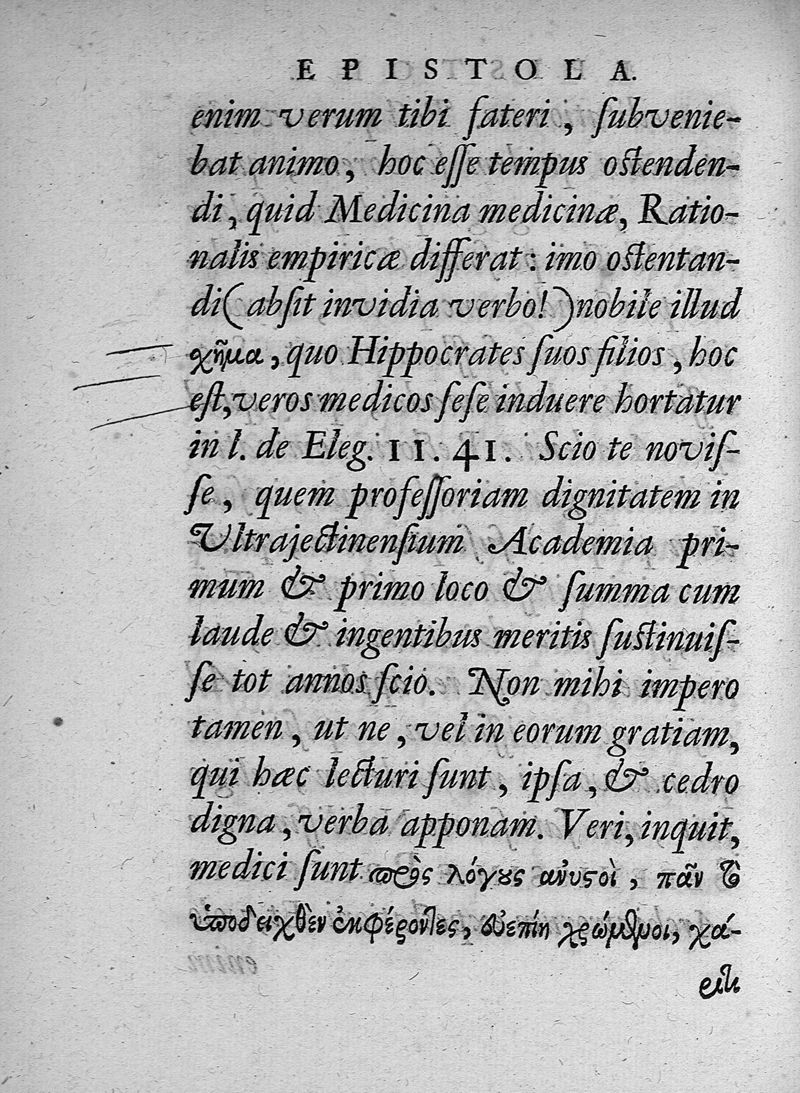 EPISTOLA.
enim verum tibi fateri, ſubvenie-
bat animo, hoc eſſe tempus oſtenden-
di, quid Medicina medicinæ, Ratio-
nalis empiricæ differat: imo oſtentan-
di (abſit invidia verbo!) nobile illud
χῆμα, quo Hippocrates ſuos filios, hoc
eſt, veros medicos ſeſe induere hortatur
in l. de Eleg. II. 41. Scio te noviſ-
ſe, quem profeſſoriam dignitatem in
Ultrajectinenſium Academia pri-
mum & primo loco & ſumma cum
laude & ingentibus meritis ſuſtinuiſ-
ſe tot annos ſcio. Non mihi impero
tamen, ut ne, vel in eorum gratiam,
qui hæc lecturi ſunt, ipſa, & cedro
digna, verba apponam. Veri, inquit,
medici ſunt πρὸς λόγους ἀνυστοὶ, πᾶν τὸ
ὑποδειχθὲν ἐκφέροντες, εὐεπίῃ χρώμενοι, χά-
ριτι